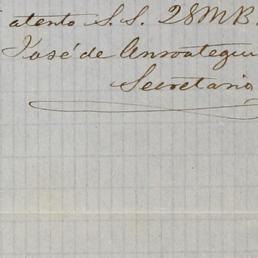 atento S. S. 2SMB.
José de Ansoategui
Secretario